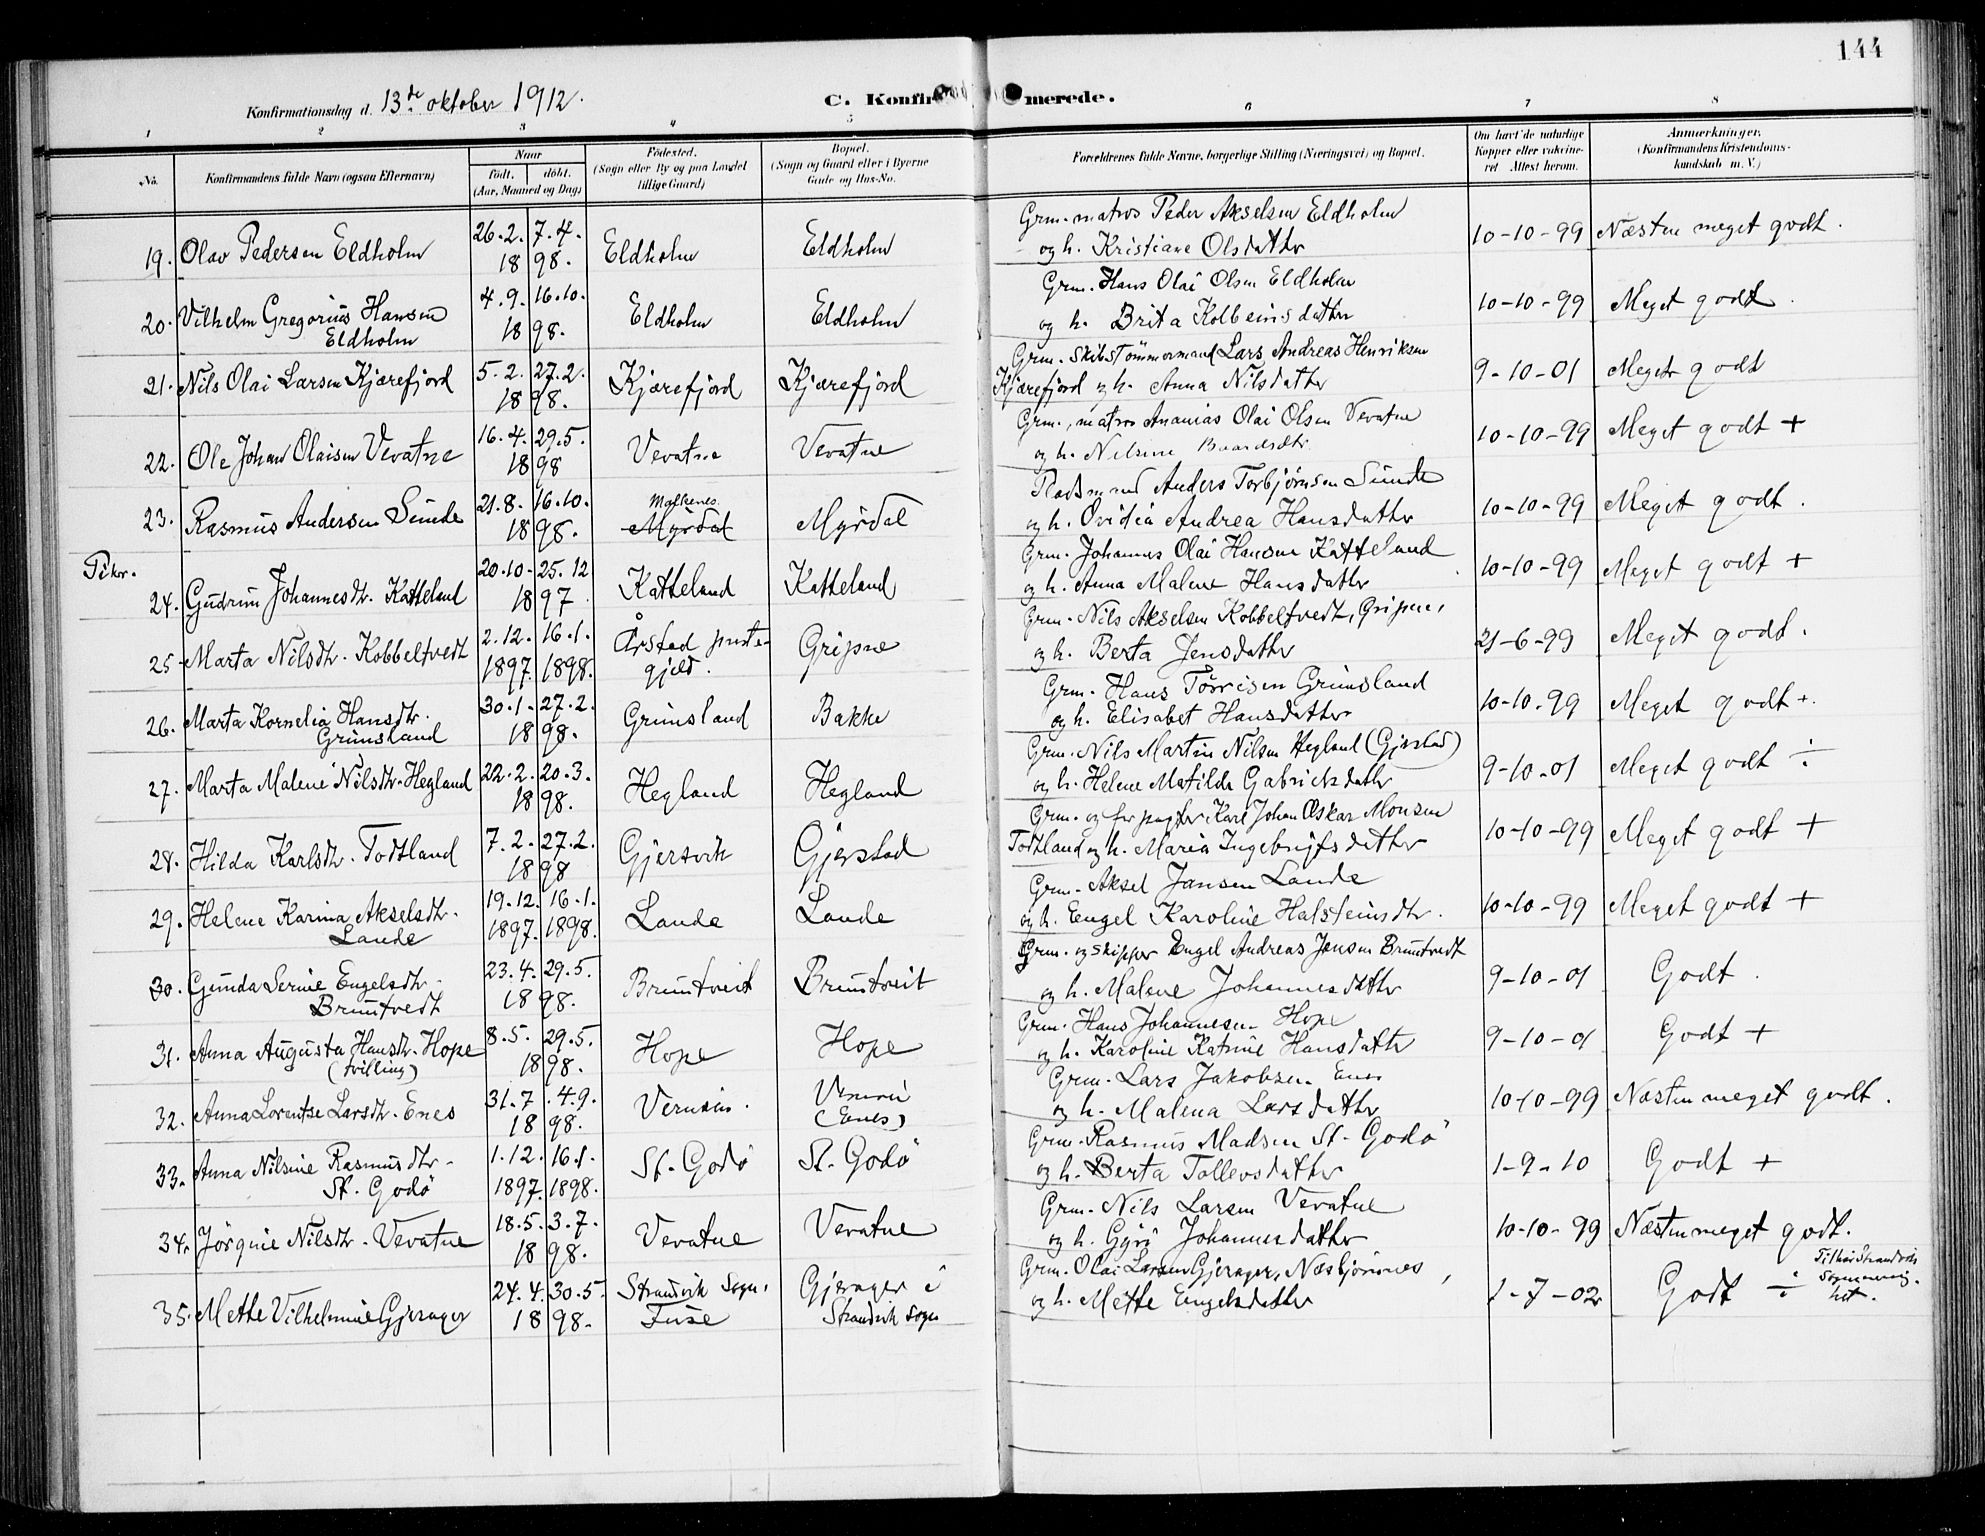 144
Konfirmationsdag d. 13de oktober 1912.
C. Konfirmerede.
1 2 3 4 5 6 7 8
No.
Konfirmandens fulde Navn (ogsaa Efternavn)
Naar
født. døbt.
(Aar, Maaned og Dag)
Fødested.
(Sogn eller By og paa Landet
tillige Gaard)
Bopæl.
(Sogn og Gaard eller i Byerne
Gade og Hus-No.
Forældrenes fulde Navne, borgerlige Stilling (Næringsvei) og Bopæl.
Om havt de naturlige
Kopper eller vaksine-
ret Attest herom.
Anmærkninger.
(Konfirmandens Kristendoms-
kundskab m. V.)
19. Olav Pedersen Eldholm 26.2. 7.4. 1898. Eldholm Eldholm
Grm. matros Peder Akselsen Eldholm
og h. Kristiane Olsdatter 10-10-99 Næsten meget godt.
20. Vilhelm Gregorius Hansen
Eldholm 4.9. 16.10. 1898. Eldholm Eldholm
Grm. Hans Olai Olsen Eldholm
og h. Brita Kolbeinsdatter 10-10-99 Meget godt.
21. Nils Olai Larsen Kjærefjord 5.2. 27.2. 1898. Kjærefjord Kjærefjord
Grm. Skibstømmermand Lars Andreas Henriksen
Kjærefjord og h. Anna Nilsdatter 9-10-01 Meget godt
22. Ole Johan Olaisen Vevatne 16.4. 29.5. 1898 Vevatne Vevatne
Grm., matros Ananias Olai Olsen Vevatne
og h. Nelsine Baardsdtr. 10-10-99 Meget godt +
23. Rasmus Andersen Sunde 21.8. 16.10. 1898. Malkenes Myrdal Myrdal
Pladsmand Anders Torbjørnsen Sunde
og h. Ovidia Andrea Hansdatter 10-10-99 Meget godt.
Piker.
24. Gudrun Johannesdtr. Katteland 20.10. 25.12 1897. Katteland Katteland
Grm. Johannes Olai Hansen Katteland
og h. Anna Malene Hansdatter 10-10-99 Meget godt +
25. Marta Nilsdtr. Kobbeltvedt 2.12. 16.1. 1897. 1898. Årstad preste-
gjeld. Gripne
Grm. Nils Akselsen Kobbeltvedt, Gripne,
og h. Berta Jensdatter 21-6-99 Meget godt.
26. Marta Kornelia Hansdtr.
Grimsland 30.1. 27.2. 1898. Grimsland Bakke
Grm. Hans Tørrisen Grimsland
og h. Elisabet Hansdatter 10-10-99 Meget godt +.
27. Marta Malene Nilsdtr. Hegland 22.2. 20.3. 1898. Hegland Hegland
Grm. Nils Martin Nilsen Hegland (Gjerstad)
og h. Helene Matilda Gabrielsdatter 9-10-01 Meget godt ÷
28. Hilda Karlsdtr. Todtland 7.2. 27.2. 1898 Gjersvik Gjerstad
Grm. og forpagter Karl Johan Oskar Monsen
Todtland og h. Maria Ingebrigtsdatter 10-10-99 Meget godt +
29. Helene Karina Akselsdtr.
Lande 19.12. 16.1. 1897. 1898. Lande Lande
Grm. Aksel Jansen Lande
og h. Engel Karoline Halsteinsdtr. 10-10-99 Meget godt +
30. Gunda Serine Engelsdtr.
Bruntvedt 23.4. 29.5. 1898. Bruntveit Bruntveit
Grm. og skipper Engel Andreas Jensen Bruntvedt
og h. Malene Johannesdatter 9-10-01 Godt.
31. Anna Augusta Hansdtr. Hope
(tvilling) 8.5. 29.5. 1898. Hope Hope
Grm. Hans Johannesen Hope
og h. Karoline Katrine Hansdatter 9-10-01 Godt +
32. Anna Lorentse Larsdtr. Enes 31.7. 4.9. 1898. (Enes)
Grm. Lars Jakobsen Enes
og h. Malena Larsdatter 10-10-99 Næsten meget godt.
33. Anna Nilsine Rasmusdtr.
St. Godø 1.12. 16.1. 1897. 1898. St. Godø St. Godø
Grm. Rasmus Madsen St. Godø
og h. Berta Tollevsdatter 1-9-10 Godt +
34. Jørgine Nilsdtr. Vevatne 18.5. 3.7. 1898. Vevatne Vevatne
Grm. Nils Larsen Vevatne
og h. Gyri Johannesdatter 10-10-99 Næsten meget godt.
35. Mette Vilhelmine Gjerager 24.4. 30.5. 1898. Strandvik Sogn,
Fuse Gjerager i
Strandvik sogn
Grm. Olai Larsen Gjerager, Næsbjørnnes,
og h. Mette Engelsdatter 1-7-02 Godt ÷